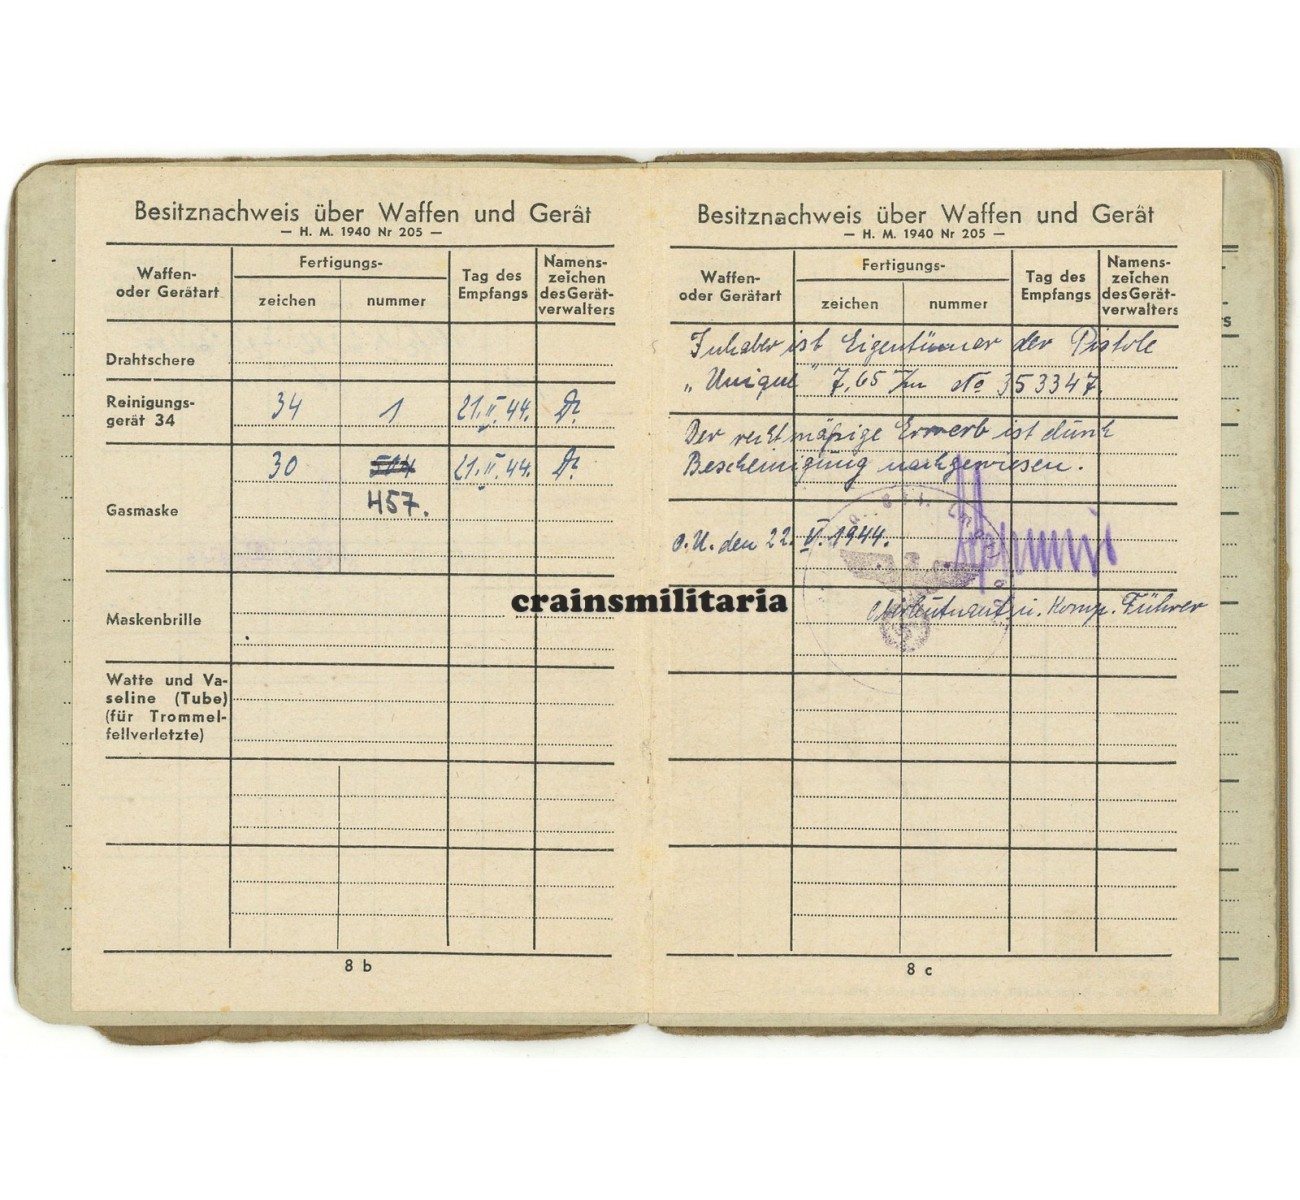 Besitznachweis über Waffen und Gerät
— H. M. 1940 Nr 205 —
Waffen-
oder Gerätart
Fertigungs-
zeichen
nummer
Tag des
Empfangs
Namens-
zeichen
des Gerät-
verwalters
Drahtschere
Reinigungs-
gerät 34
34 1 21. II. 44.
Gasmaske
30 504 21. II. 44.
457.
Maskenbrille
Watte und Va-
seline (Tube)
(für Trommel-
fellverletzte)
8 b
Besitznachweis über Waffen und Gerät
— H. M. 1940 Nr 205 —
Waffen-
oder Gerätart
Fertigungs-
zeichen
nummer
Tag des
Empfangs
Namens-
zeichen
des Gerät-
verwalters
Inhaber ist Eigentümer der Pistole
„Unique" 7,65 m/m No 353347.
Der rechtmäßige Erwerb ist durch
Bescheinigung nachgewiesen.
O.U. den 22. V. 1944.
Oberleutnant u. Komp. Führer
8 c
crainsmilitaria
rs